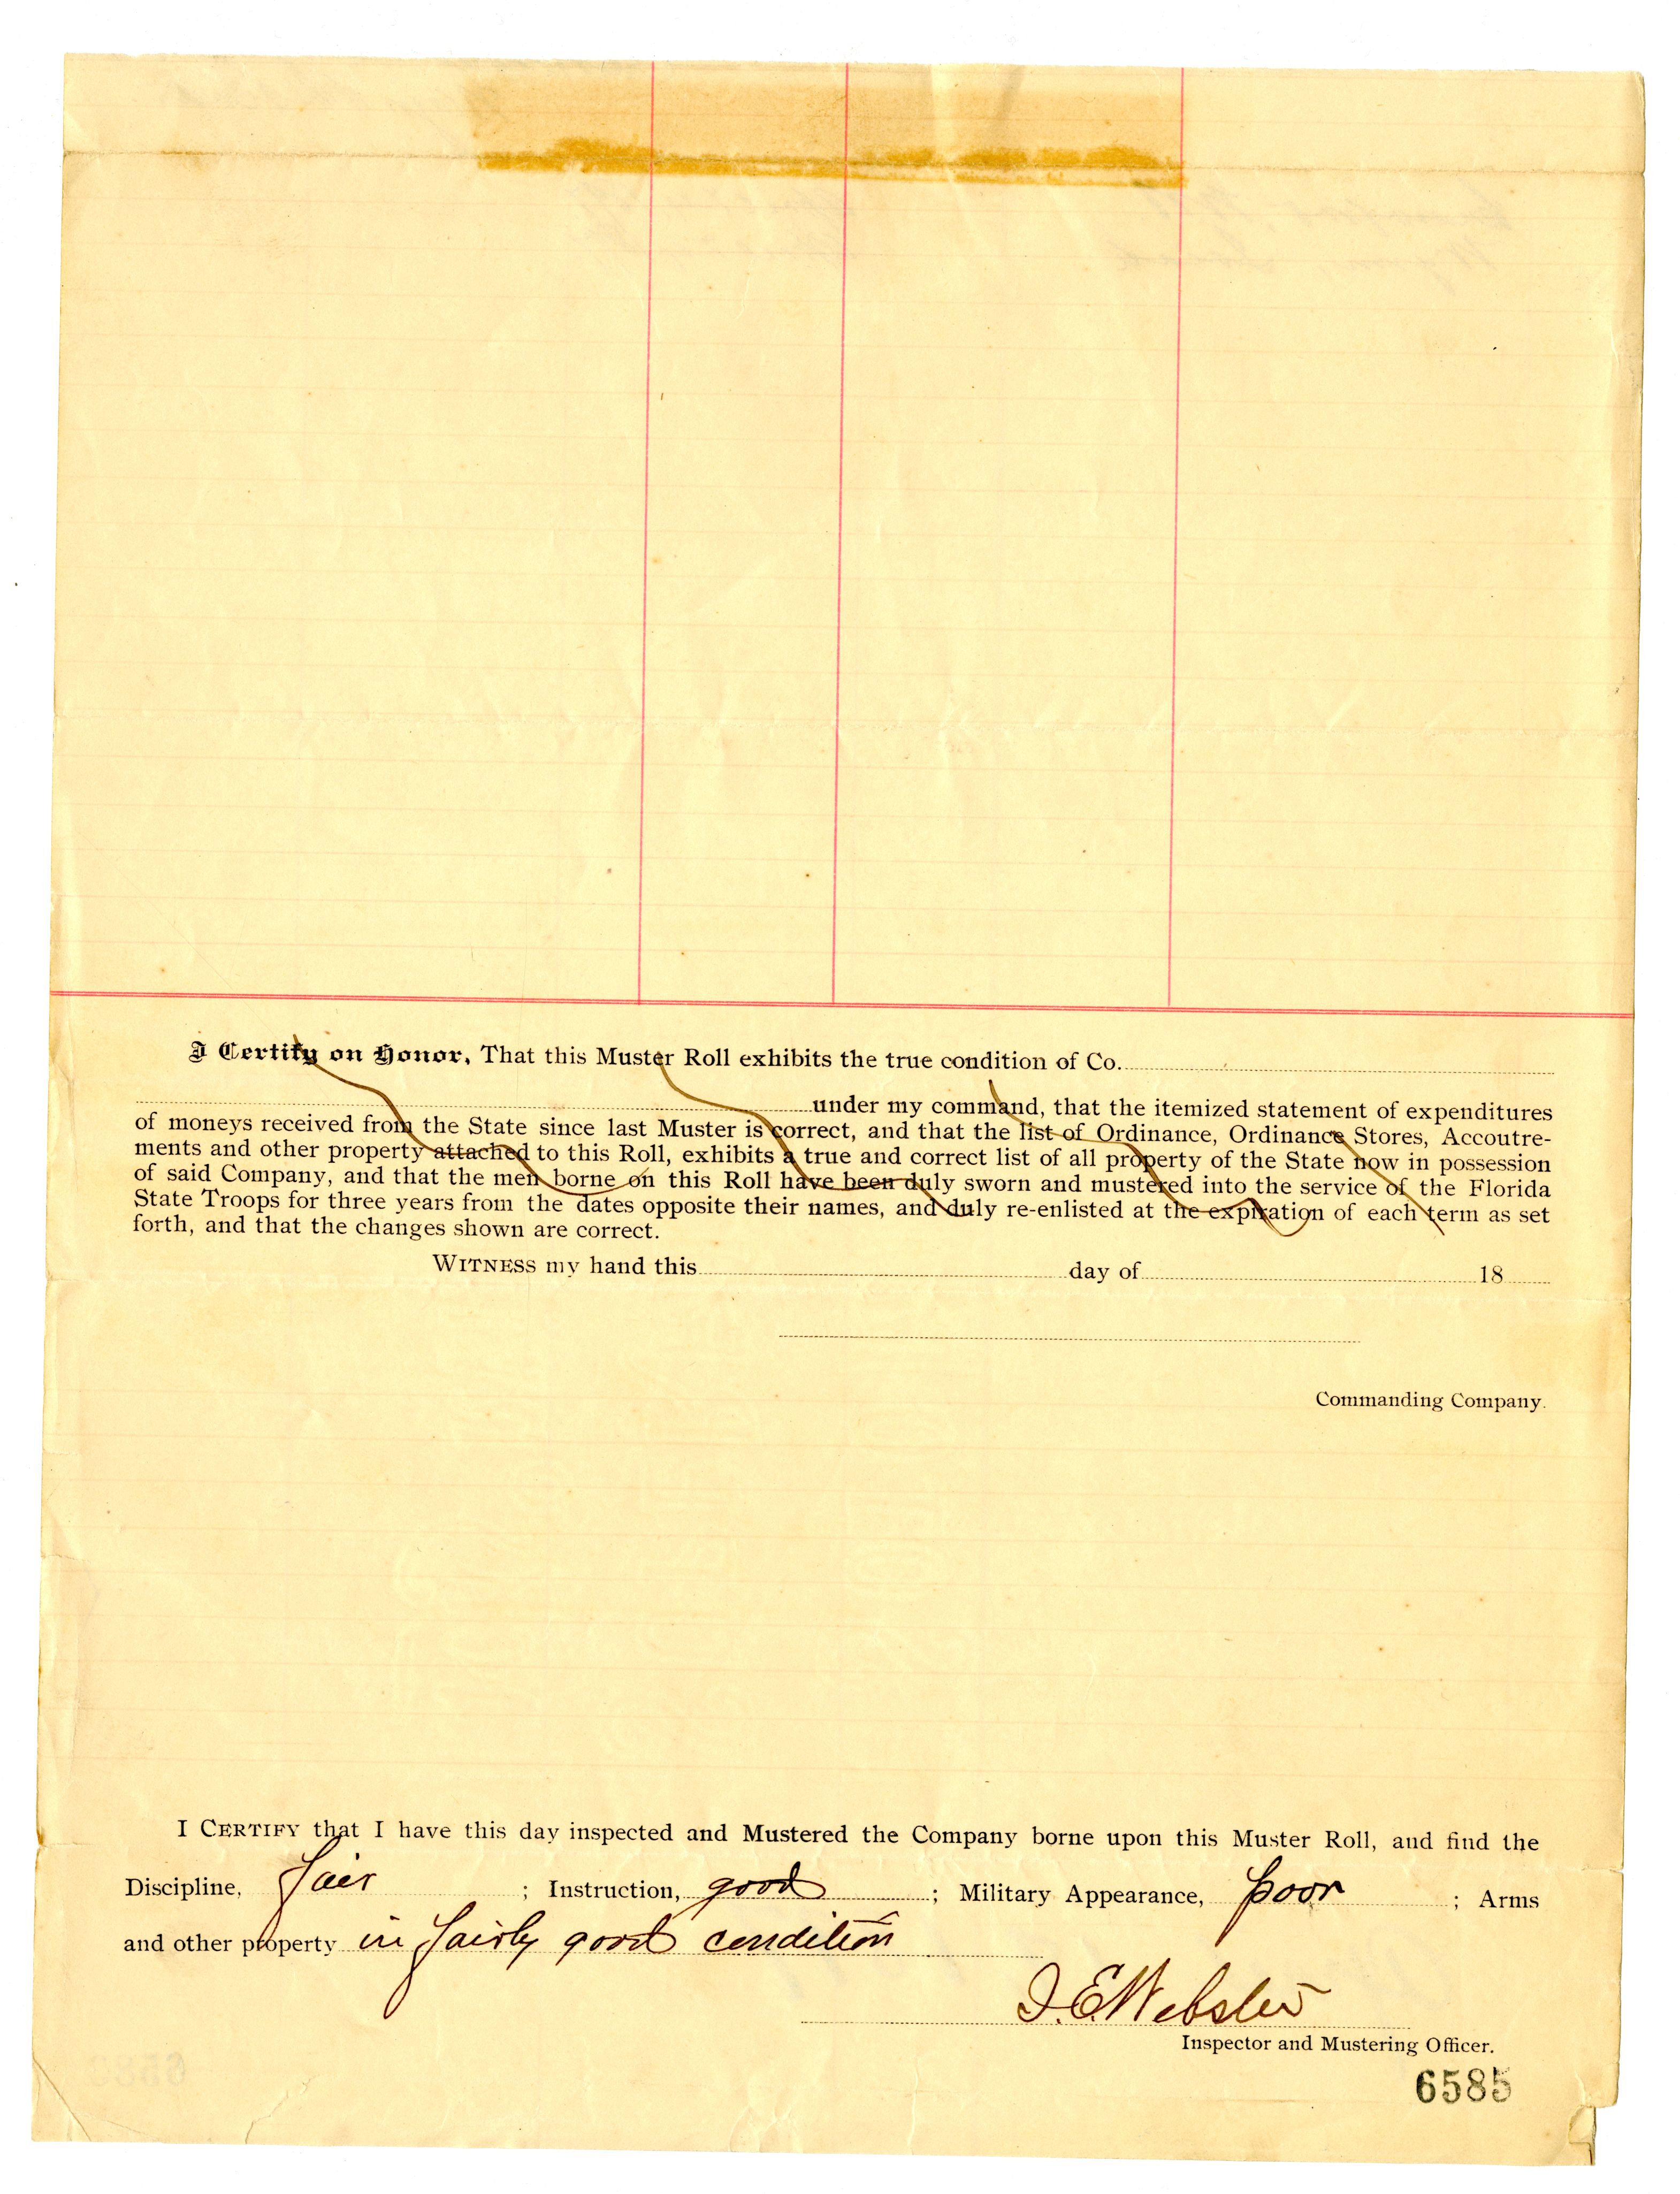 I Certify on Honor, That this Muster Roll exhibits the true condition of Co.
under my command, that the itemized statement of expenditures
of moneys received from the State since last Muster is correct, and that the list of Ordinance, Ordinance Stores, Accoutre-
ments and other property attached to this Roll, exhibits a true and correct list of all property of the State now in possession
of said Company, and that the men borne on this Roll have been duly sworn and mustered into the service of the Florida
State Troops for three years from the dates opposite their names, and duly re-enlisted at the expiration of each term as set
forth, and that the changes shown are correct.
WITNESS my hand this day of 18
Commanding Company.
I CERTIFY that I have this day inspected and Mustered the Company borne upon this Muster Roll, and find the
Discipline, fair ; Instruction, good ; Military Appearance, poor ; Arms
and other property in fairly good condition
I. E. Webster
Inspector and Mustering Officer.
6585